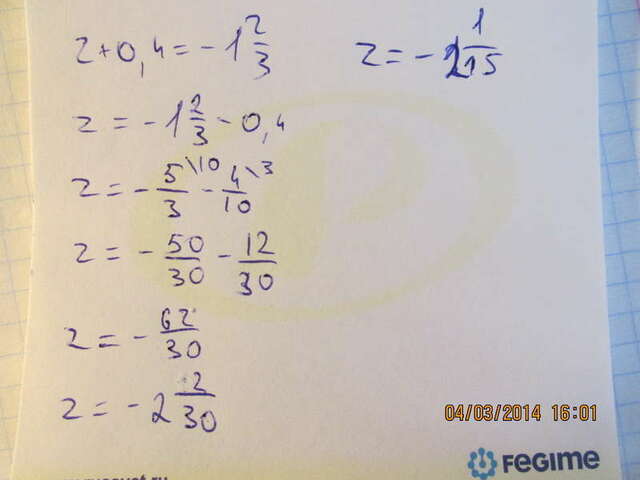 z + 0,4 = -1 2/3
z = -1 2/3 - 0,4
z = - 5/3 \10 - 4/10 \3
z = - 50/30 - 12/30
z = - 62/30
z = -2 2/30
z = -2 1/15
04/03/2014 16:01
FEGIME